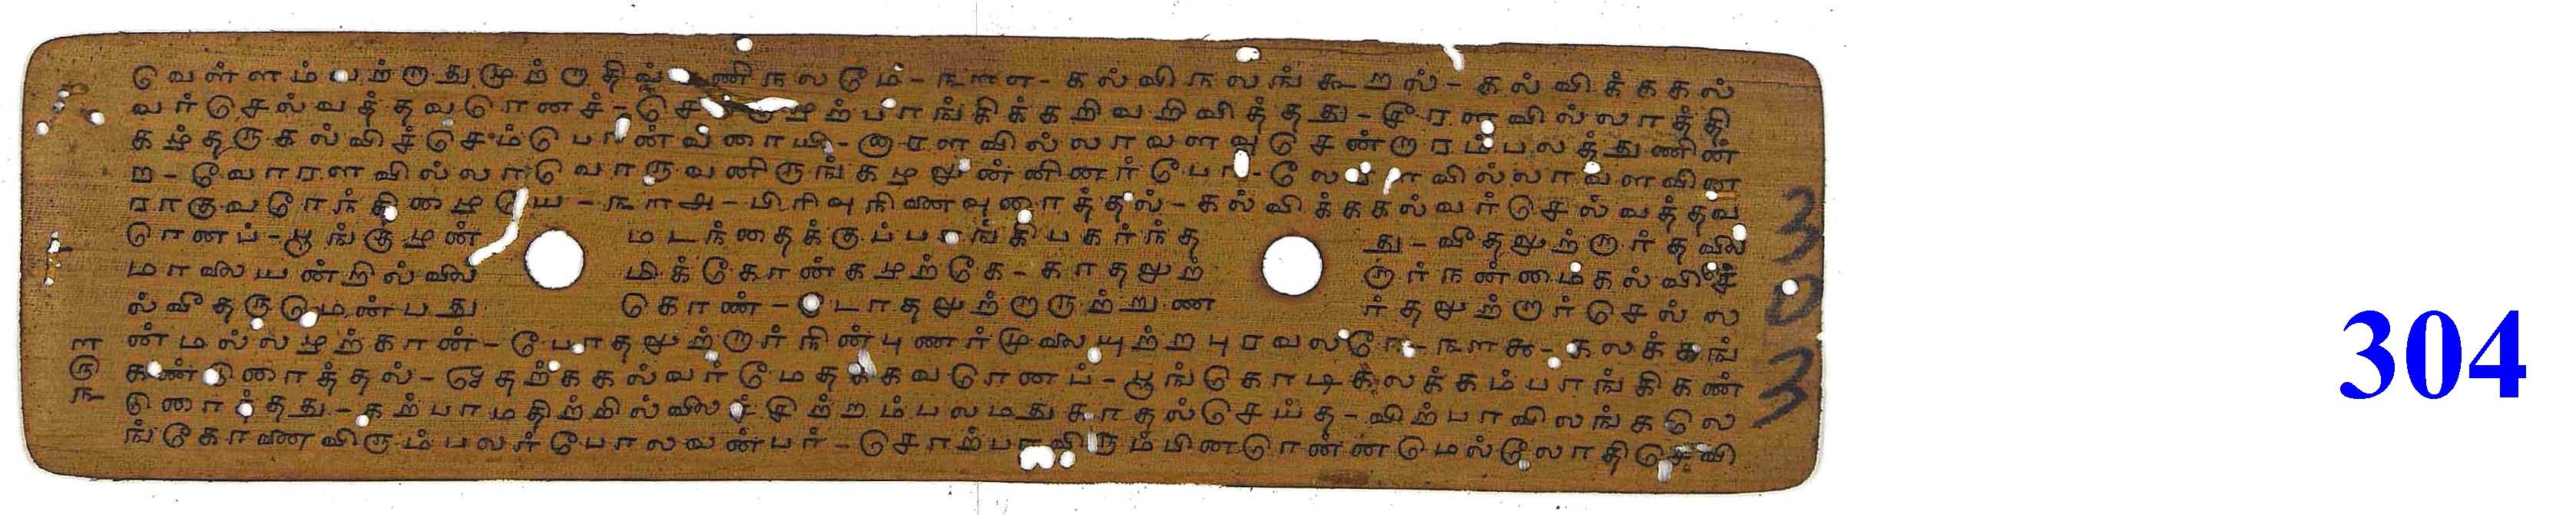 வெள்ளம்வற்றாதுமுற்றாதில் ணிநலமே-௩ளஎ-கல்விநலங்கூறல்-கல்விக்ககல்
வர்செல்வத்தவரெனச்-செ ழற்பாங்கிக்கறிவறிவித்தது-சீரளவில்லாத்தி
கழ்தருகல்விச்செம்பொன்வரையி-னாரளவில்லாவளவுசென்றாரம்பலத்துணின்
ற-வோரளவில்லாவொருவனிருங்கழலுன்னினர்போ-லே வில்லாவளவின
ராகுவரேந்திழையே-௩ள௮-பிரிவுநினைவுரைத்தல்-கல்விக்ககல்வர்செல்வத்தவ
ரெனப்-பூங்குழன் மடந்தைக்குப்பாங்கிபகர்ந்த து-வீதலுற்றார்தலை
மாலையன்றில்லை மிக்கோன்கழற்கே-காதலுற் றார்நன்மைகல்விச்செ
ல்வீதருமென்பது கொண்-டோதலுற்றாருற்றுண ர்தலுற்றார்செல்ல
ன்மல்லழற்கான்-போதலுற்றார்நின்புணர்முலையுற்றபுரவலரே-௩ள௯-கலக்கங்
கண்டுரைத்தல்-ஓதற்ககல்வர்மேதக்கவரெனப்-பூங்கொடிகலக்கம்பாங்கிகண்
டுரைத்தது-கற்பாமதிற்றில்லைச்சிற்றம்பலமதுகாதல்செய்த-விற்பாவிலங்கலெ
ங்கோனைவிரும்பலர்போலவன்பர்-சொற்பாவிரும்பினரென்னமெல்லோதிசெவி
ள
௫
௩
303
304